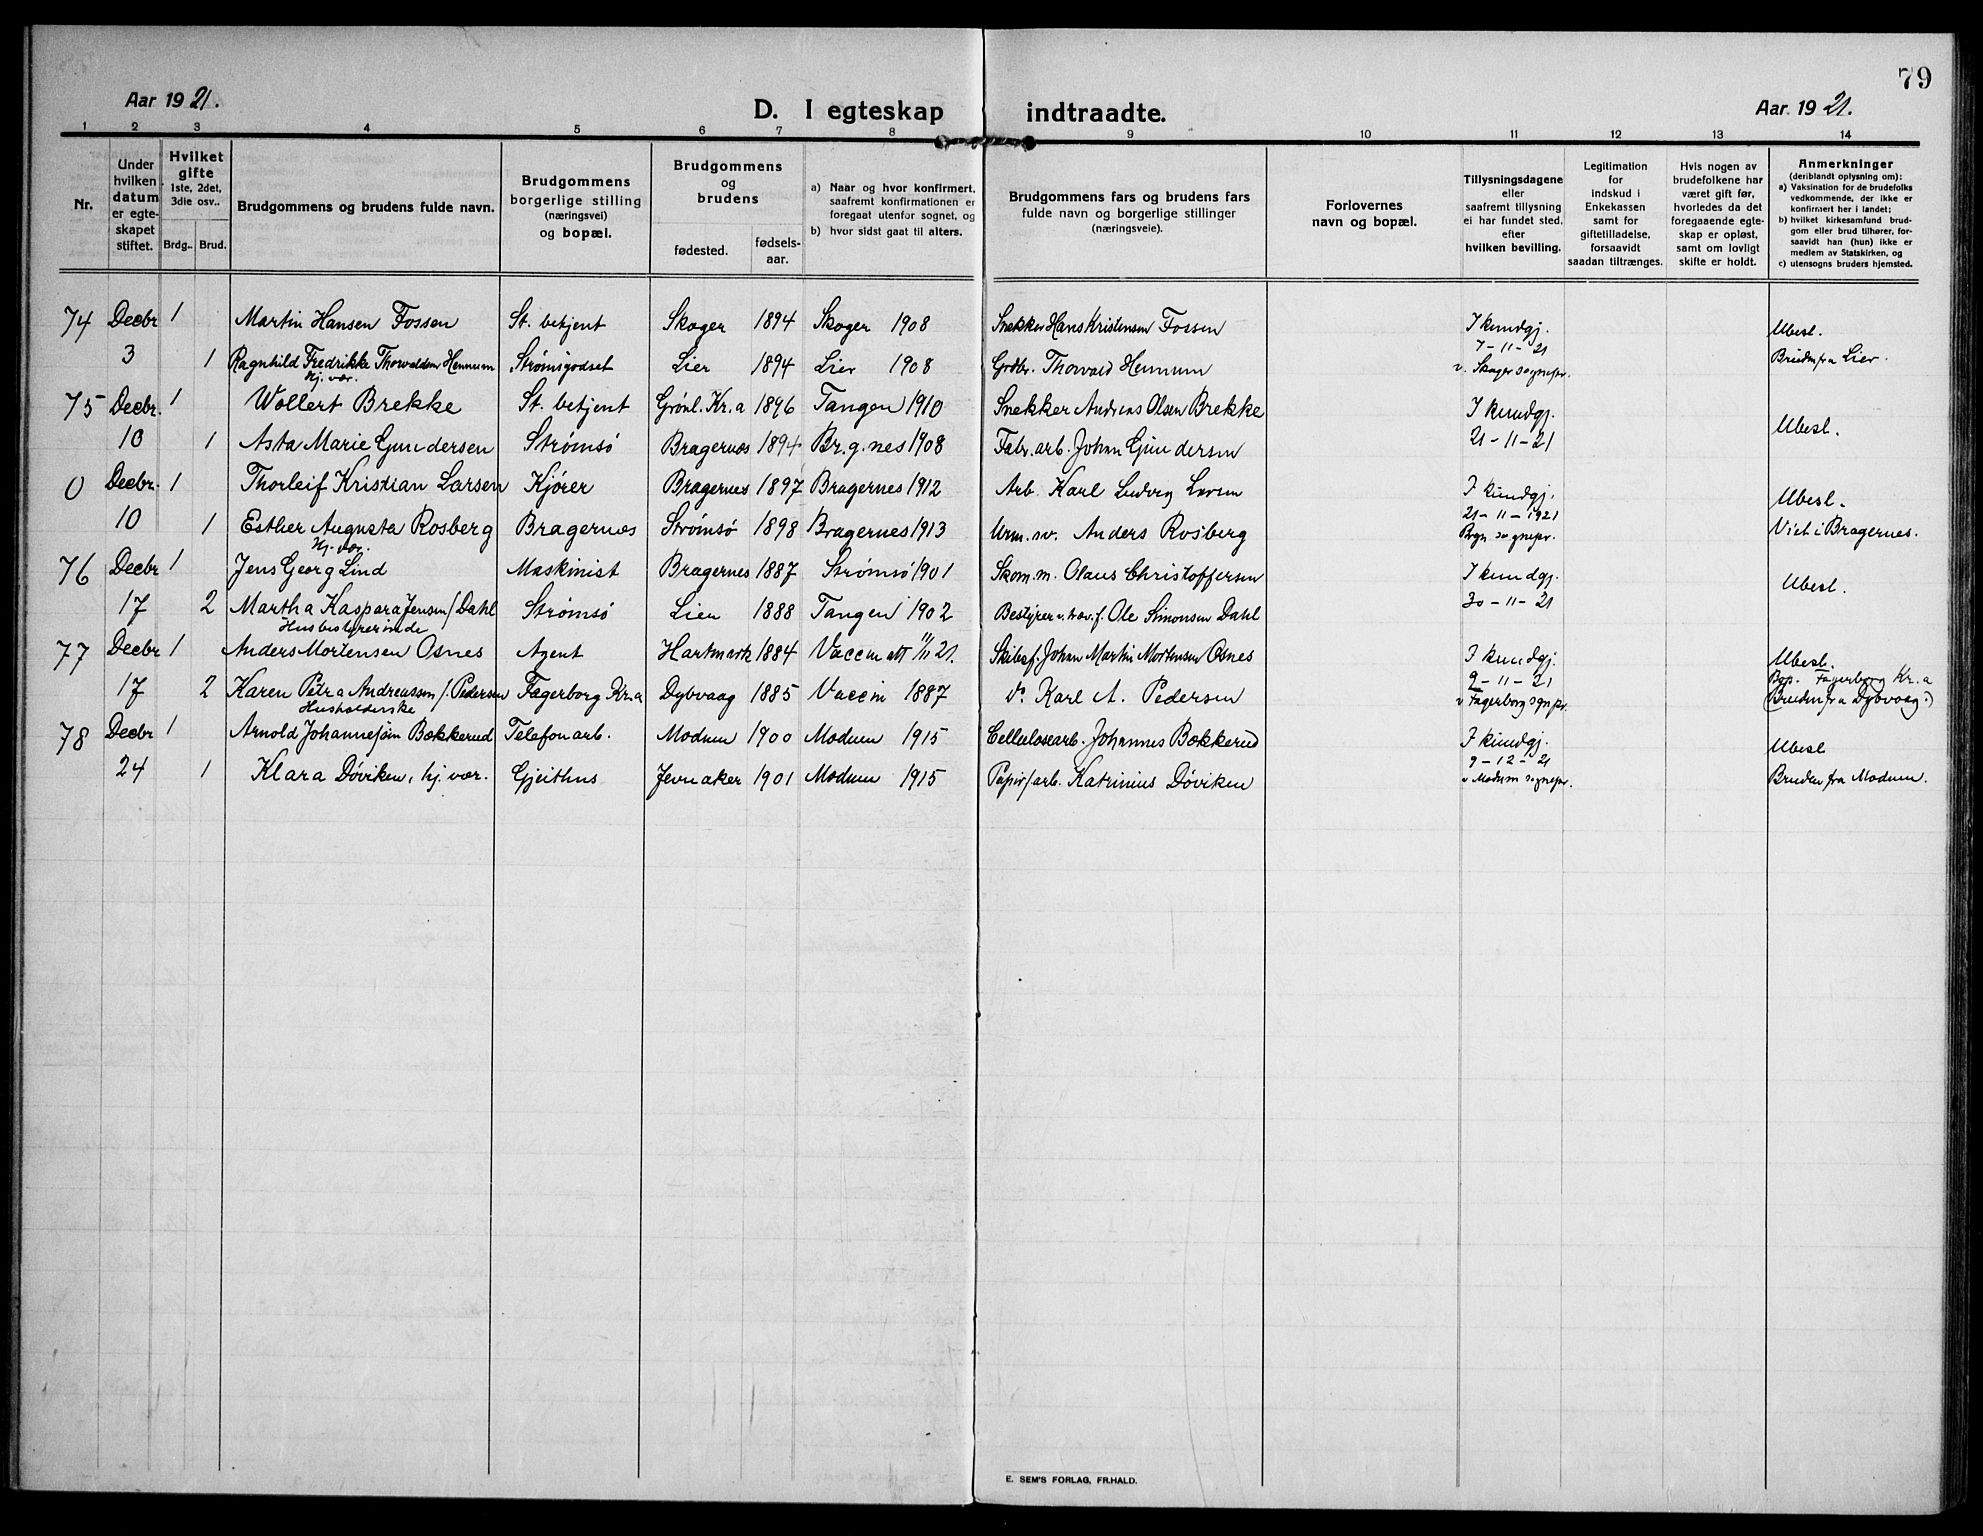 79
Aar 1921.
D. I egteskap indtraadte.
Aar 1921.
1 2 3 4 5 6 7 8 9 10 11 12 13 14
Nr.
Under hvilken datum er egte-skapet stiftet.
Hvilket gifte 1ste, 2det, 3die osv..
Brdg.. Brud.
Brudgommens og brudens fulde navn.
Brudgommens borgerlige stilling (næringsvei) og bopæl.
Brudgommens og brudens
fødested. fødsels-aar.
a) Naar og hvor konfirmert, saafremt konfirmationen er foregaat utenfor sognet, og
b) hvor sidst gaat til alters.
Brudgommens fars og brudens fars fulde navn og borgerlige stillinger (næringsveie).
Forlovernes navn og bopæl.
Tillysningsdagene eller saafremt tillysning ei har fundet sted, efter hvilken bevilling.
Legitimation for indskud i Enkekassen samt for giftetilladelse, forsaavidt saadan tiltrænges.
Hvis nogen av brudefolkene har været gift før, hvorledes da det foregaaende egte-skap er opløst, samt om lovligt skifte er holdt.
Anmerkninger (deriblandt oplysning om):
a) Vaksination for de brudefolks vedkommende, der ikke er konfirmert her i landet;
b) hvilket kirkesamfund brud-gom eller brud tilhører, for-saavidt han (hun) ikke er medlem av Statskirken, og
c) utensogns bruders hjemsted.
74 Decbr 1 Martin Hansen Fossen St. betjent Skoger 1894 Skoger 1908 Snekker Hans Kristensen Fossen I kundgj. Ubesl.
7-11-21
3 1 Ragnhild Fredrikke Thorvaldsen Hennum Strømsgodset Lier 1894 Lier 1908 Grdbr. Thorvald Hennum v. Skoger sognepr. Bruden fra Lier.
Hj. vær.
75 Decbr. 1 Wollert Brekke St. betjent Grønl. Kr.a 1896 Tangen 1910 Snekker Andreas Olsen Brekke I kundgj.
10 1 Asta Marie Gundersen Strømsø Bragernæs 1894 Br.g.nes 1908 Fabr. arb. Johan Gundersen 21-11-21 Ubesl.
0 Decbr. 1 Thorleif Kristian Larsen Kjører Bragernes 1897 Bragernes 1912 Arb. Karl Ludvig Larsen I kundgj. Ubesl.
21-11-1921
10 1 Esther Augusta Rosberg Bragernæs Strømsø 1898 Bragernes 1913 Anders Rosberg Brgn sognepr. Viet i Bragernes.
Hj. vær.
76 Decbr 1 Jens Georg Lind Maskinist Bragernes 1887 Strømsø 1901 Skom. m. Olaus Christoffersen I kundgj. Ubesl.
17 2 Martha Kaspara Jensen / Dahl Strømsø Lier 1888 Tangen 1902 Bestyrer v. Ole Simonsen Dahl 30-11-21
Husbestyrerinde
77 Decbr 1 Anders Mortensen Osnes Agent Hartmark 1884 Vaccin att 1/11 21. Skibsf. Johan Martin Mortensen Osnes I kundgj. Ubesl.
17 2 Karen Petra Andreassen / Pedersen Fagerborg Kr.a Dybvaag 1885 Vaccin 1887 do Karl A. Pedersen 9-11-21 Bop. Fagerborg Kr.a
Husholderske v Fagerborg sognpr. (Bruden fra Dybvaag.)
78 Decbr 1 Arnold Johannessøn Bækkerud Telefonarb. Modum 1900 Modum 1915 Cellulosearb. Johannes Bækkerud I kundgj. Ubesl
9-12-21
24 1 Klara Døviken, hj. vær. Gjeithus Jevnaker 1901 Modum 1915 Papirfarb. Katrinius Døviken v Modum sognepr. Bruden fra Modum.
E. SEM'S FORLAG, FR.HALD.